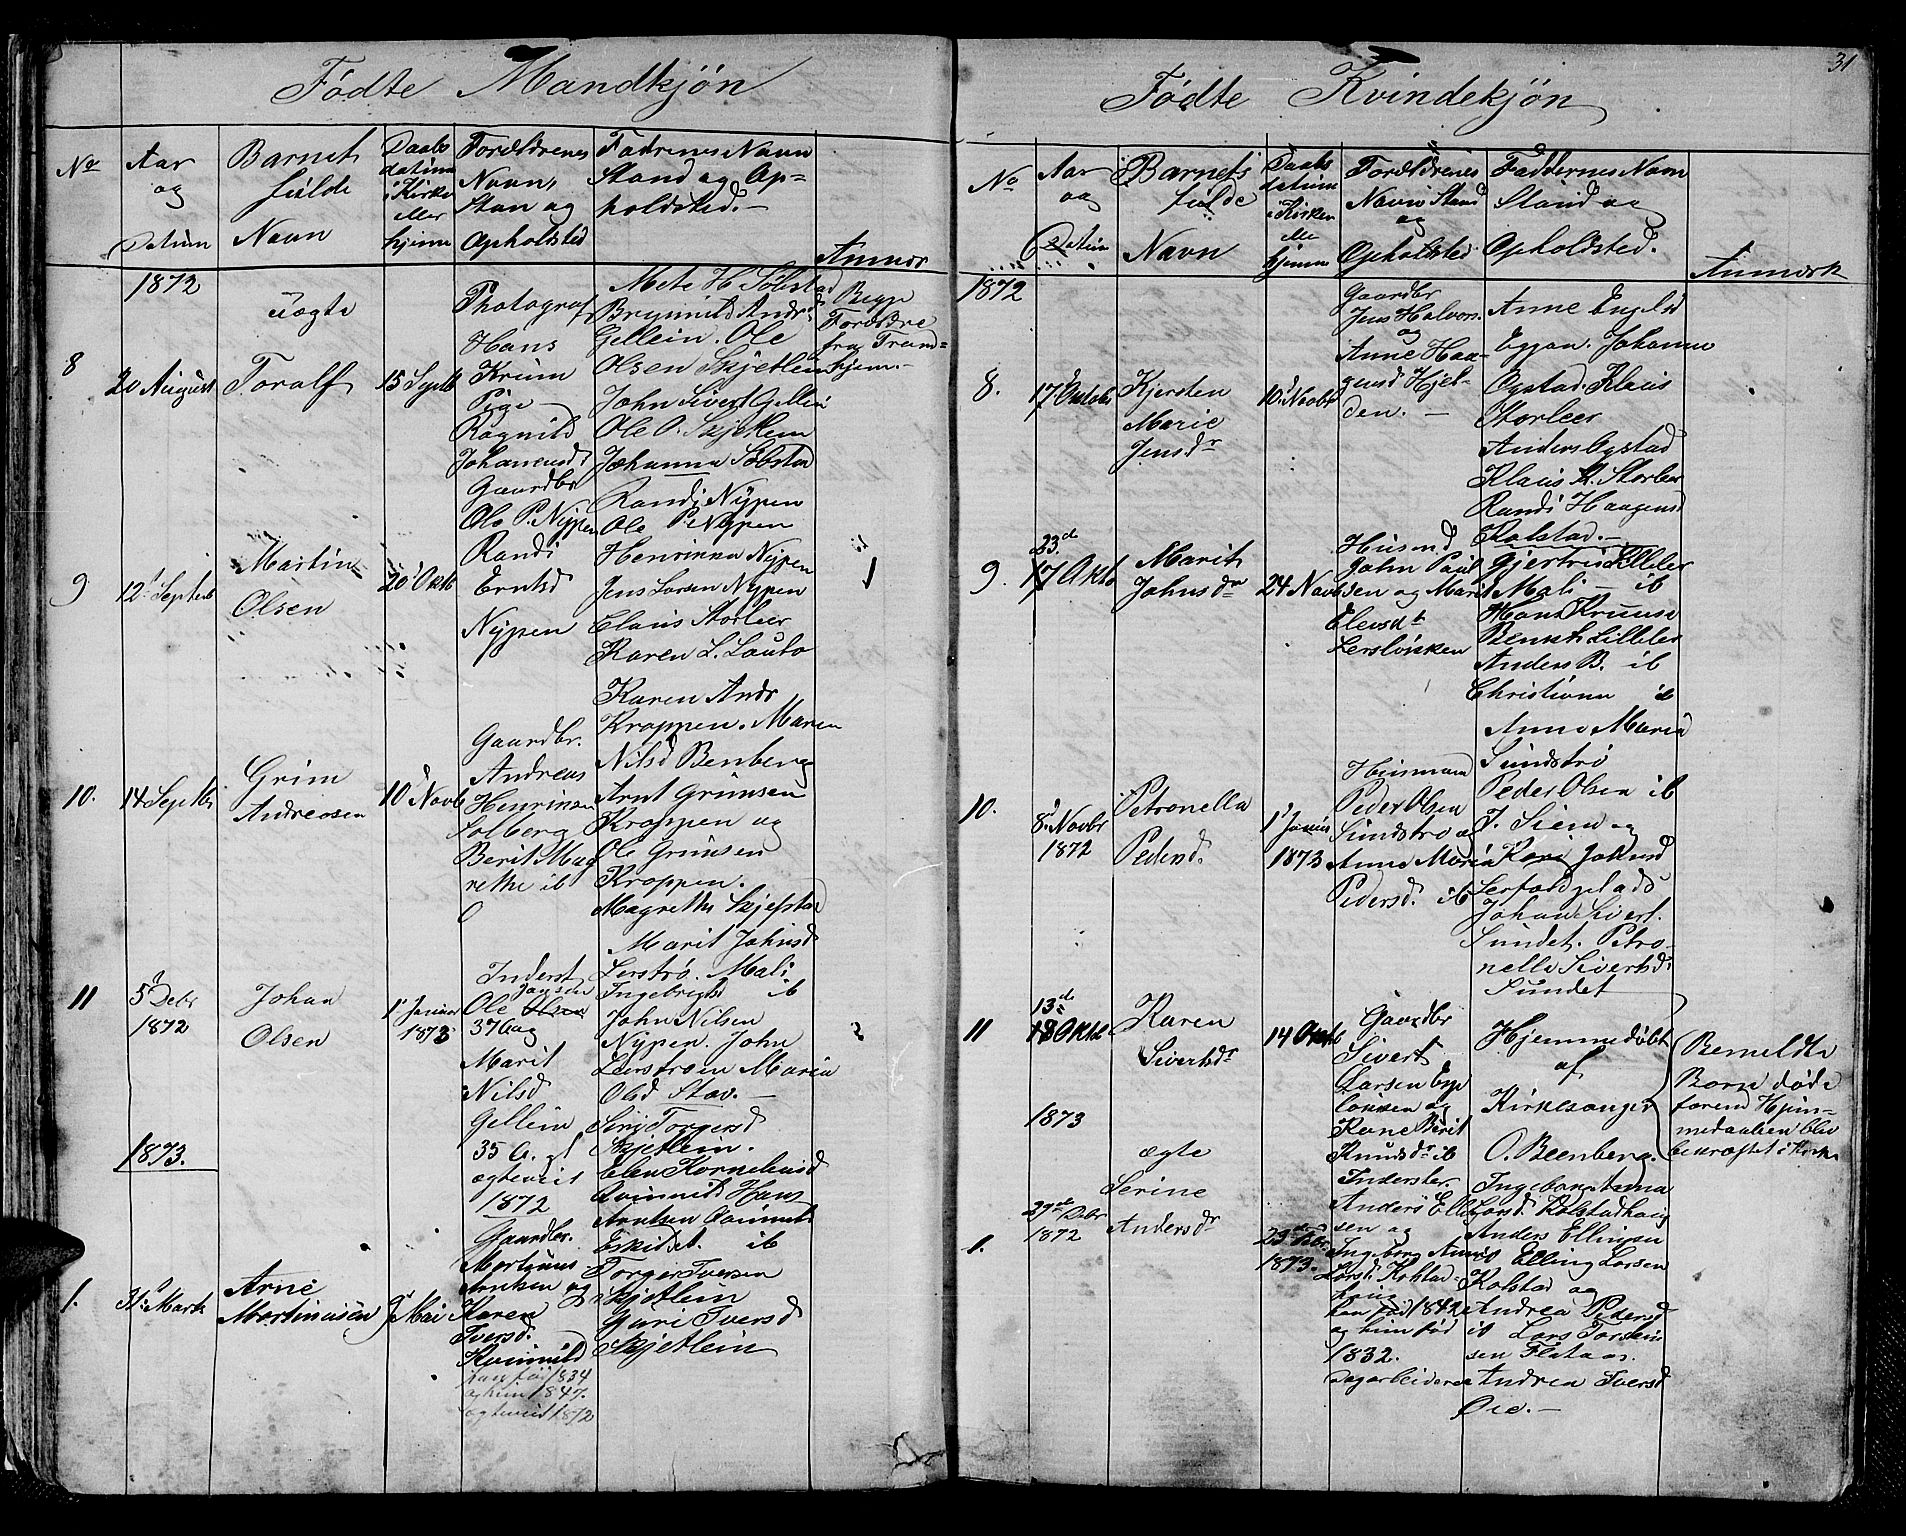 31
Fødte Mandkjøn
No
Aar
og
Datum
Barnets
fulde
Navn
Daabs
datum
i Kirke
eller
hjemme
Forældrenes
Navn,
Stan og
Opholdsted
Fadrenes Navn
Stand og Op-
holdsted.-
Anmær
1872
8
20 August
uægte
Toralf
15 Septb
Photograf
Hans
Krum
Pige
Ragnild
Johannesd
Mete H Solstad
Brynnild Andrd
Gellein. Ole
Olsen Skjetlein
John Sivert Gellein
Ole P. Skjetlein
Johanna Solstad
Begge
Forældre
fra Trond-
hjem.-
9
12 Septeb
Martin
Olsen
20 Okto
Gaardbr
Ole P. Nypen
Randi
Erntsd
Nypen
Randi Nypen
Ole P Nypen
Henrikka Nypen
Jens Larsen Nypen
Claus Storleer
Karen L. Lauto
1
10.
14 Septbr
Grim
Andreasen
10 Novb
Gaardbr.
Andreas
Henriksen
Solberg
Berit Mag
rethe ib
Karen Andr
Kroppen. Maren
Nilsd Benberg
Arnt Grimsen
Kroppen og
Ole Grimsen
Kroppen.
Magrethe Skjefstad
11
5 Debr
1872
Johan
Olsen
1 Januar
1873
Inderst
Jansen
Ole Olsen
37 A og
Marit
Nilsd
Gellein
35 A. gl
ægteviet
1872
Marit Johnsd
Lerstrø. Mali
Ingebrigtd ib
John Nilsen
Nypen. John
Leerstrøen Maria
Olsd Stav.-
1873.
1.
31 Marts
Arne
Martinusen
9 Mai
Gaardbr.
Martinus
Arntsen og
Karen
Iversd.
Kvinnild
han fød 1834
og hun 1847.
ægteviet 1872
Siri Torgersd
Skjetlein.
Elen Korneliusd
Qvinnild Hans
Arntsen Qvinnild
Eskidset. ib
Torger Iversen
Skjetlein
Guri Iversd
Skjetlein
Fødte Kvindekjøn
No
Aar
og
Datum
Barnets
fulde
Navn
Daabs
datum
i Kirken
elle
hjemme
Forældrenes
Navn Stand
og
Opholdsted
Faddernes Navn
Stand og
Opholdsted.
Anmærk
1872
8.
17 Octobr
Kjersten
Marie
Jensdr
10 Novbr
Gaardbr
Jens Halvors.
og
Anne Haa-
gensd Hjel-
den.-
Anne Engelsd
Eggan. Johanne
Ogstad. Klaus
Storleer
Anders Ogstad
Klaus K. Storleer
Randi Haagensd
Rolstad.-
9.
23d
17 Okto
Marit
Johnsdr
24 Novb
Husmd
John Paul
sen og Marit
Elensdt
Lersløkken
Gjertrud Lilleler
Mali - ib
Hans Kruuse
Benth Lilleler
Anders B. ib
Christianna ib
10.
8 Novbr
1872
Petronella
Pedersd.
1 Januar
1873
Husmand
Peder Olsen
Sundstrø og
Anne Maria
Pedersd. ib
Anne Maria
Sundstrø
Peder Olsen ib
J. Siem og
Kari Johnsd
Lerfaldgelads
Johan Sivert.
Sundet. Petro-
nelle Sivertsd.
Sundet
11
13de
18 Okto
Karen
Sivertsdr
14 Oktb
Gaardbr
Sivert
Larsen Egge
løkken og
Kone Berit
Knudsdr ib
Hjemmedøbt
af
Kirkesanger
O. Beenberg.
Bemeldte
Barn døde
førend Hjem-
medaaben blev
bekræftet i Kirke
1873
1.
27de Debr
1872
ægte
Serine
Andersdr
23 Febr.
1873.
Inderster
Anders Elling
sen og
Ingeborg Anna
Larsd. Kolstad-
haug
han fød 1842
og hun fød
1832.
Dagarbeidere
Ingebor Anna
Larsd. Kolstadhaug
Anders Ellingsen
ib Elling Larsen
Kolstad og
Andrea Pedersd
ib Lars Torstein
sen Flataas.
Andrea Iversd
Øie.-